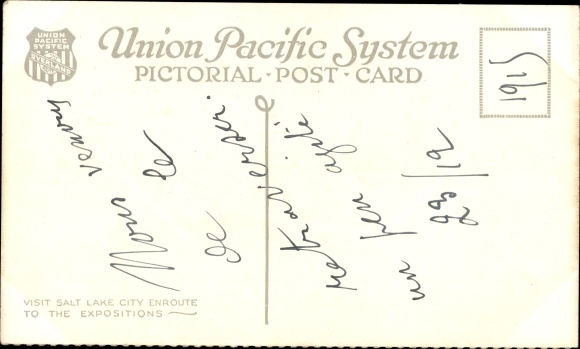 UNION PACIFIC SYSTEM
OVERLAND
Union Pacific System
PICTORIAL · POST · CARD
1915
Nous venons
de le
retraverser.
un peu agité
23/12
VISIT SALT LAKE CITY ENROUTE
TO THE EXPOSITIONS